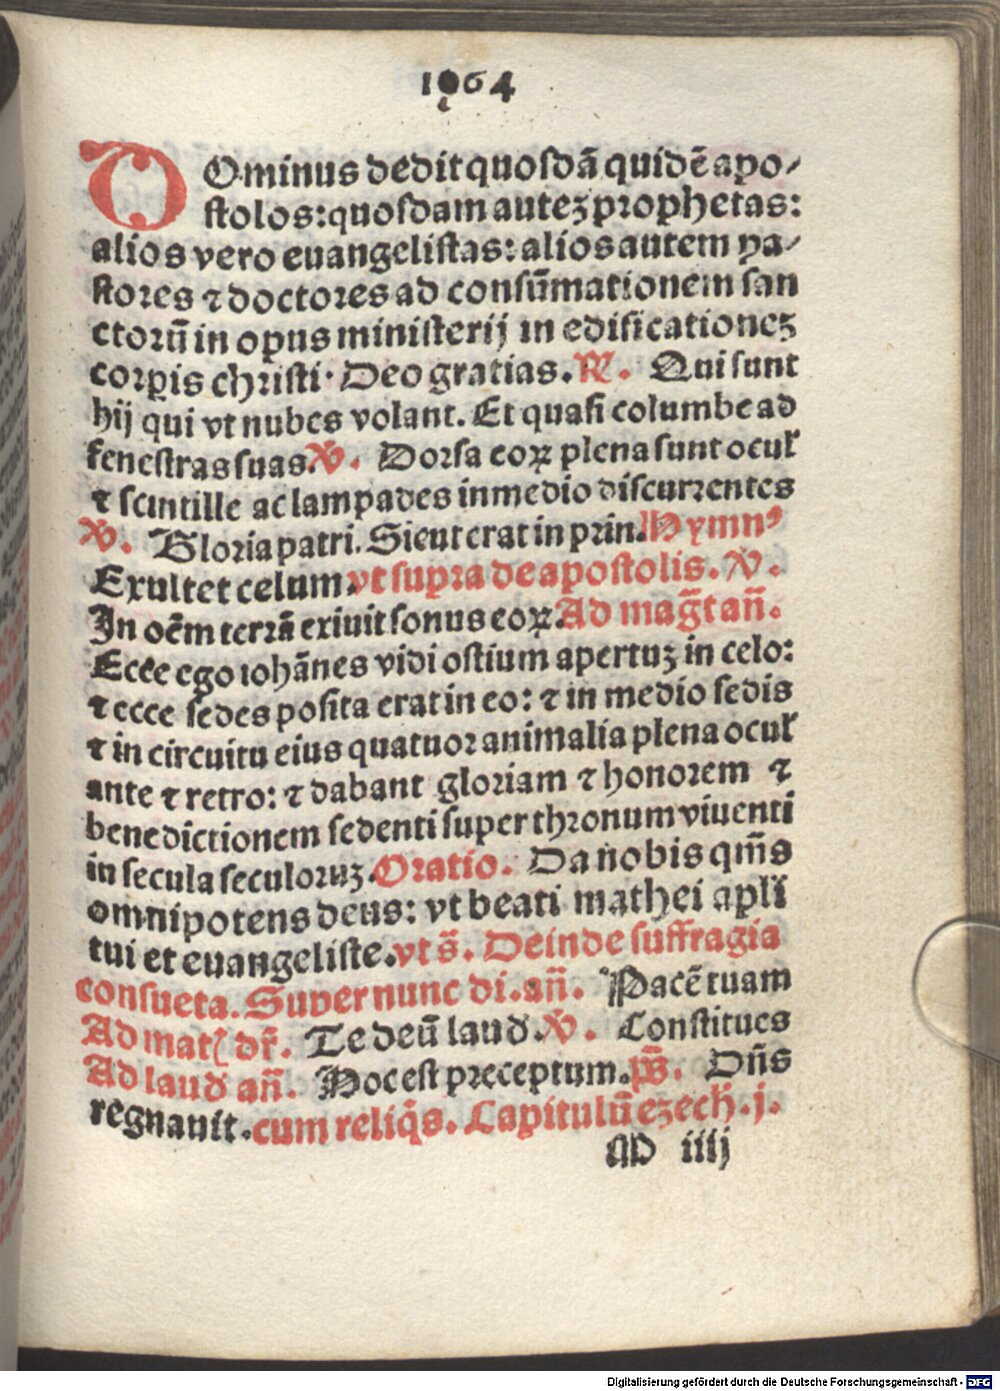 1964
DOminus dedit quosdā quidē apo⸗
stolos: quosdam autez prophetas:
alios vero euangelistas: alios autem pa⸗
stores ⁊ doctores ad consūmationem san
ctorū in opus ministerij in edificationez
corpis christi· Deo gratias. ℟. Qui sunt
hij qui vt nubes volant. Et quasi columbe ad
fenestras suas. ℣. Dorsa eoꝝ plena sunt ocul̛
⁊ scintille ac lampades in medio discurrentes
℣. Gloria patri. Sicut erat in prin. Hymnꝰ
Exultet celum. vt supra de apostolis. ℣.
In oēm terrā exiuit sonus eoꝝ. Ad mag̅t an̄.
Ecce ego iohānes vidi ostium apertuz in celo:
⁊ ecce sedes posita erat in eo: ⁊ in medio sedis
⁊ in circuitu eius quatuor animalia plena ocul̛
ante ⁊ retro: ⁊ dabant gloriam ⁊ honorem ⁊
benedictionem sedenti super thronum viuenti
in secula seculoruz. Oratio. Da nobis qm̄s
omnipotens deus: vt beati mathei apl̄i
tui et euangeliste. vt s̄. Deinde suffragia
consueta. Super nunc di. an̄. Pacē tuam
Ad mat̛ dr̄. Te deū laud. ℣. Constitues
Ad laud an̄. Hoc est preceptum. ps̄. Dn̄s
regnauit. cum reliq̄s. Capitulū ezech̄. j.
M iiij
Digitalisierung gefördert durch die Deutsche Forschungsgemeinschaft - DFG